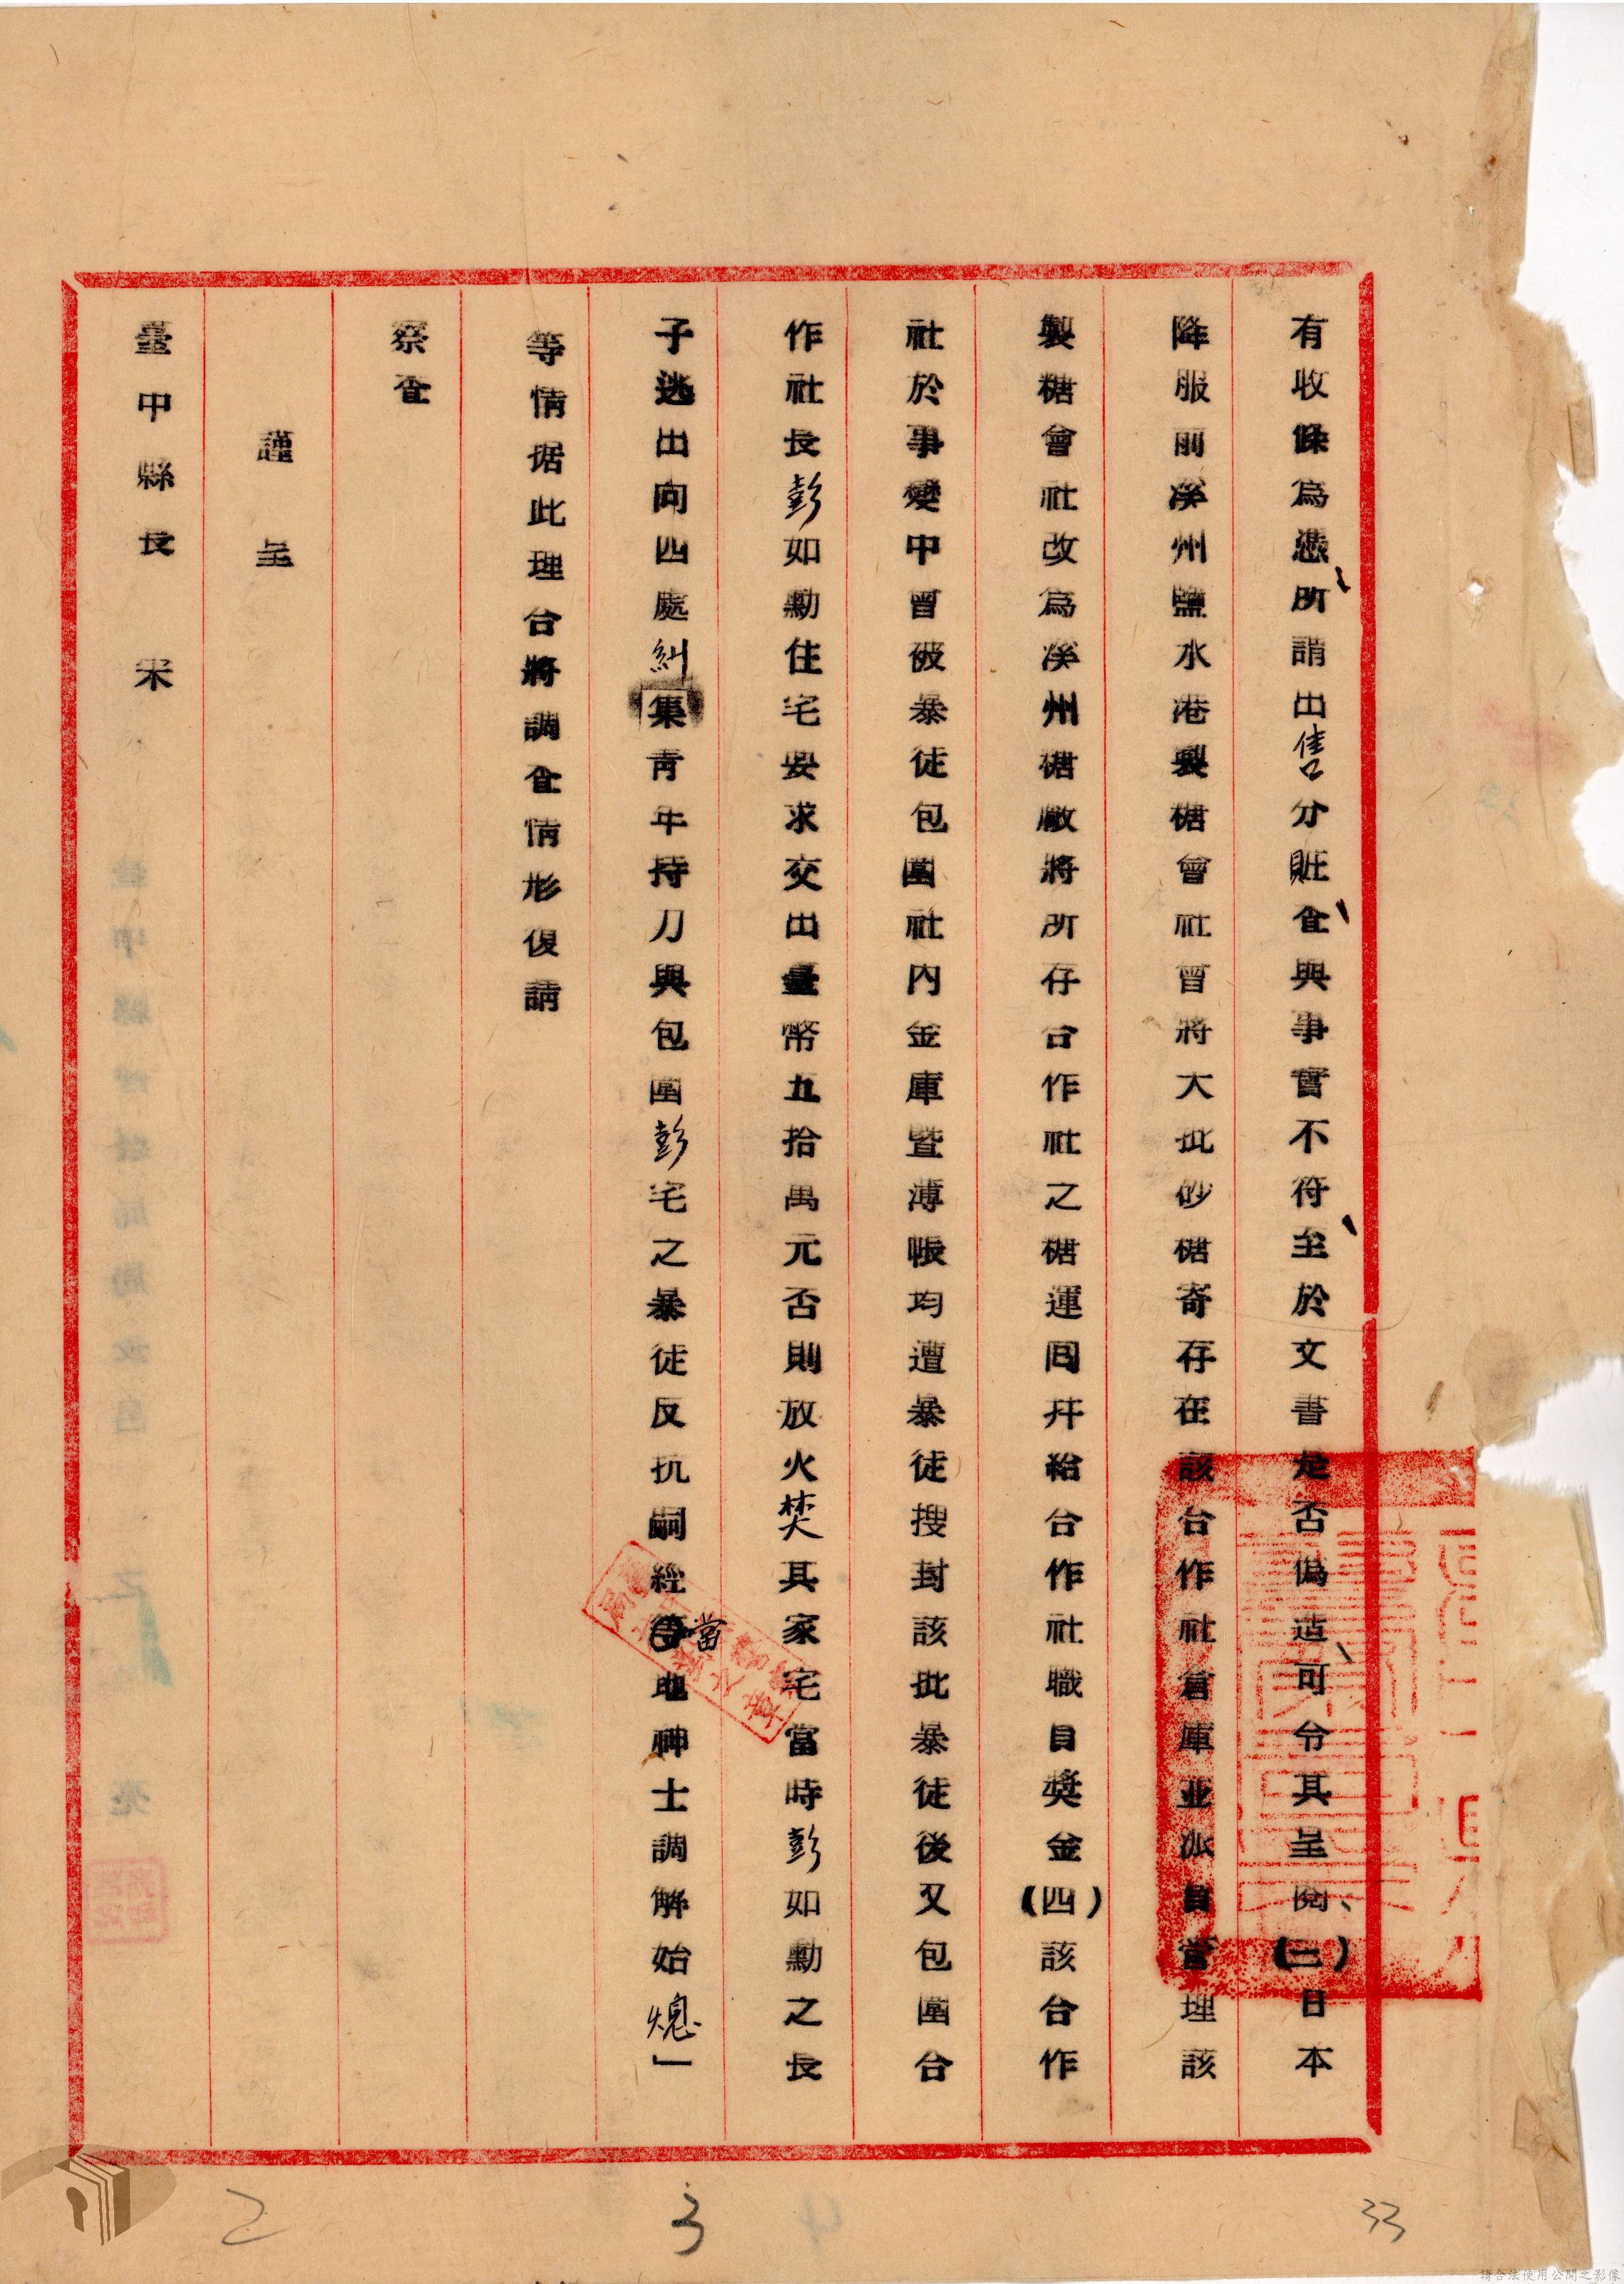 有收條為憑所謂出售分賍食與事實不符至於文書是否偽造可令其呈閱、(三)日本
降服前溪州鹽水港製糖會社曾將大批砂糖寄存在該合作社倉庫並派員管理該
製糖會社改為溪州糖廠將所存合作社之糖運回并給合作社職員獎金(四)該合作
社於事變中曾被暴徒包圍社內金庫暨薄帳均遭暴徒搜封該批暴徒後又包圍合
作社長彭如勳住宅要求交出臺幣五拾萬元否則放火焚其家宅當時彭如勳之長
子逃出向四處糾集青年持刀與包圍彭宅之暴徒反抗嗣經當地紳士調解始熄」
等情据此理合將調查情形復請
察查
謹呈
臺中縣長宋
2
3
4
33
請合法使用公開之影像